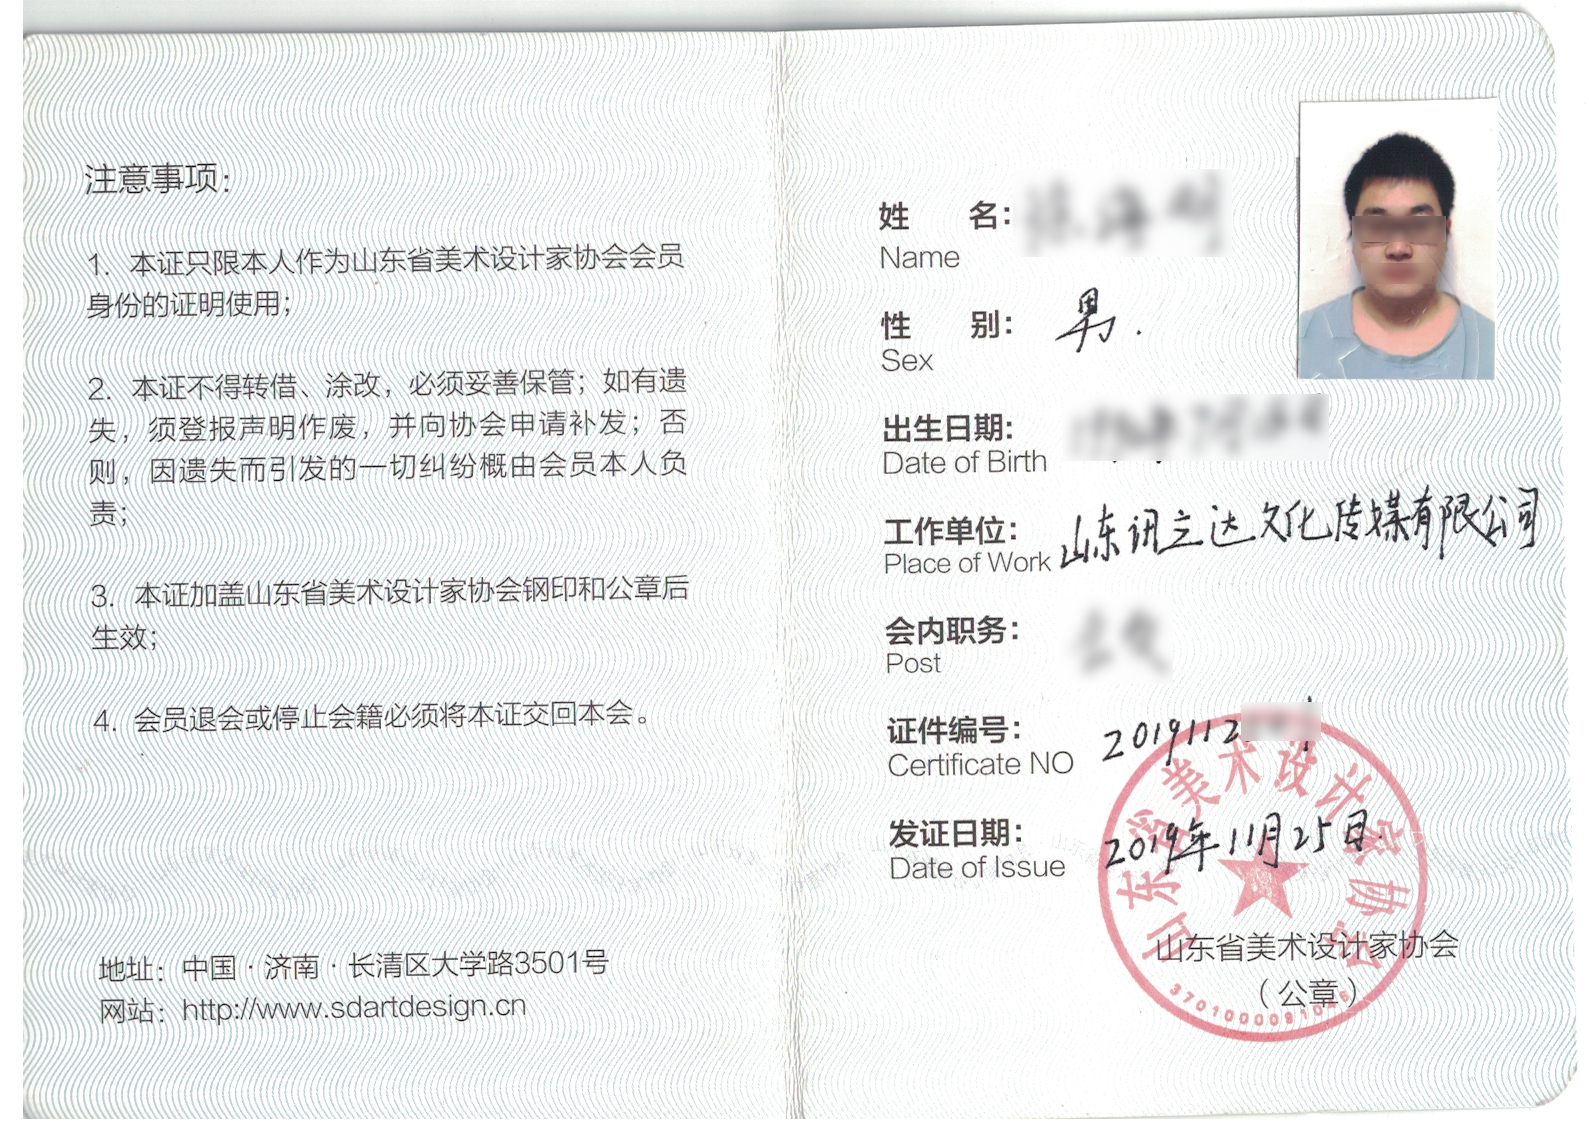 注意事项：
1. 本证只限本人作为山东省美术设计家协会会员
身份的证明使用；
2. 本证不得转借、涂改，必须妥善保管；如有遗
失，须登报声明作废，并向协会申请补发；否
则，因遗失而引发的一切纠纷概由会员本人负
责；
3. 本证加盖山东省美术设计家协会钢印和公章后
生效；
4. 会员退会或停止会籍必须将本证交回本会。
地址：中国·济南·长清区大学路3501号
网站：http://www.sdartdesign.cn
姓 名：
Name
性 别：男.
Sex
出生日期：
Date of Birth
工作单位：山东讯立达文化传媒有限公司
Place of Work
会内职务：
Post
证件编号：2019112
Certificate NO
发证日期：2019年11月25日
Date of Issue
山东省美术设计家协会
山东省美术设计家协会
（公章）